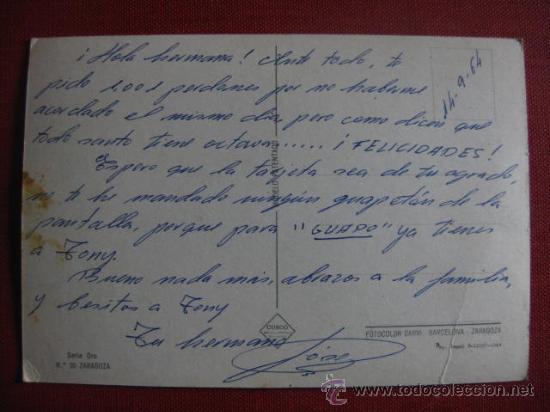 ¡Hola hermana! Ante todo, te
pido 1.001 perdones por no haberme
acordado el mismo día pero como dicen que
todo santo tiene octava..... ¡FELICIDADES!
Espero que la tarjeta sea de tu agrado,
no te he mandado ningún guapetón de la
pantalla, porque para "GUAPO" ya tienes
a Tony.
Bueno nada más, abrazos a la familia,
y besitos a Tony
Tu hermano
José
14-9-64
CUSCÓ
Serie Oro
N.º 20 ZARAGOZA
FOTOCOLOR BARCELONA - ZARAGOZA
todocoleccion.net